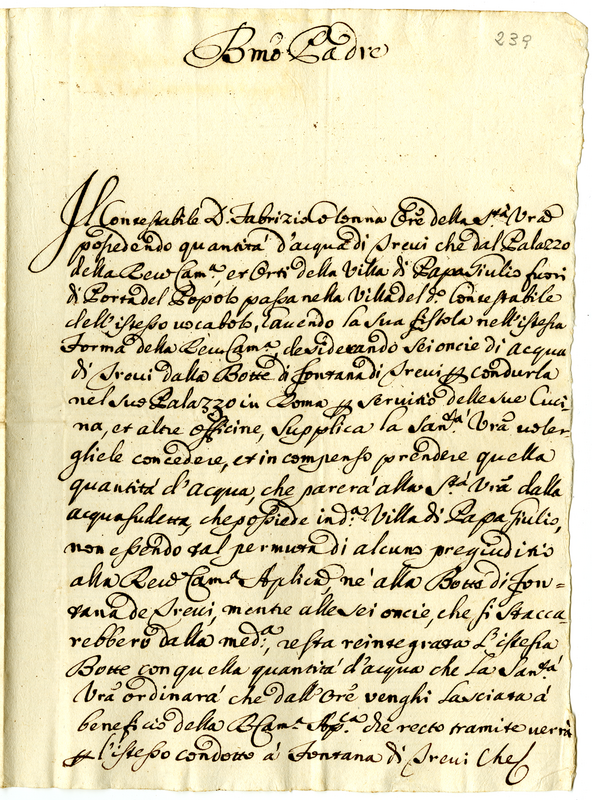 239
Bmo Padre
Il Contestabile D. Fabrizio Colonna Ore della Stà Vrã
possedendo quantità d'acqua di Trevi che dal Palazzo
della Rev. Cam.ª, et Orti della Villa di Papa Giulio fuori
di Porta del Popolo passa nella Villa del d.º Contestabile
dell'istesso vocabolo, havendo la sua fistola nell'istessa
forma della Rev. Cam.ª, desiderando sei oncie di acqua
di Trevi dalla Botte di fontana di Trevi p condurla
nel suo Palazzo in Roma p servitio delle sue Cuci-
na, et altre officine, Supplica la San.tà Vrã voler-
gliele concedere, et in compenso prendere quella
quantità d'acqua, che parerà alla S.tà Vrã dalla
acqua sudetta, che possiede in d.ª Villa di Papa Giulio,
non essendo tal permuta di alcuno pregiuditio
alla Rev. Cam.ª Aplicã, ne' alla Botte di fon=
tana de Trevi, mentre alle sei oncie, che si stacca-
rebbero dalla med.ª, resta reintegrata l'istessa
Botte con quella quantità d'acqua che la San.tà
Vrã ordinarà che dall'Ore venghi lasciata à
beneficio della R. Cam.ª Ap.ca che recto tramite verrà
p l'istesso condotto à fontana di Trevi Che